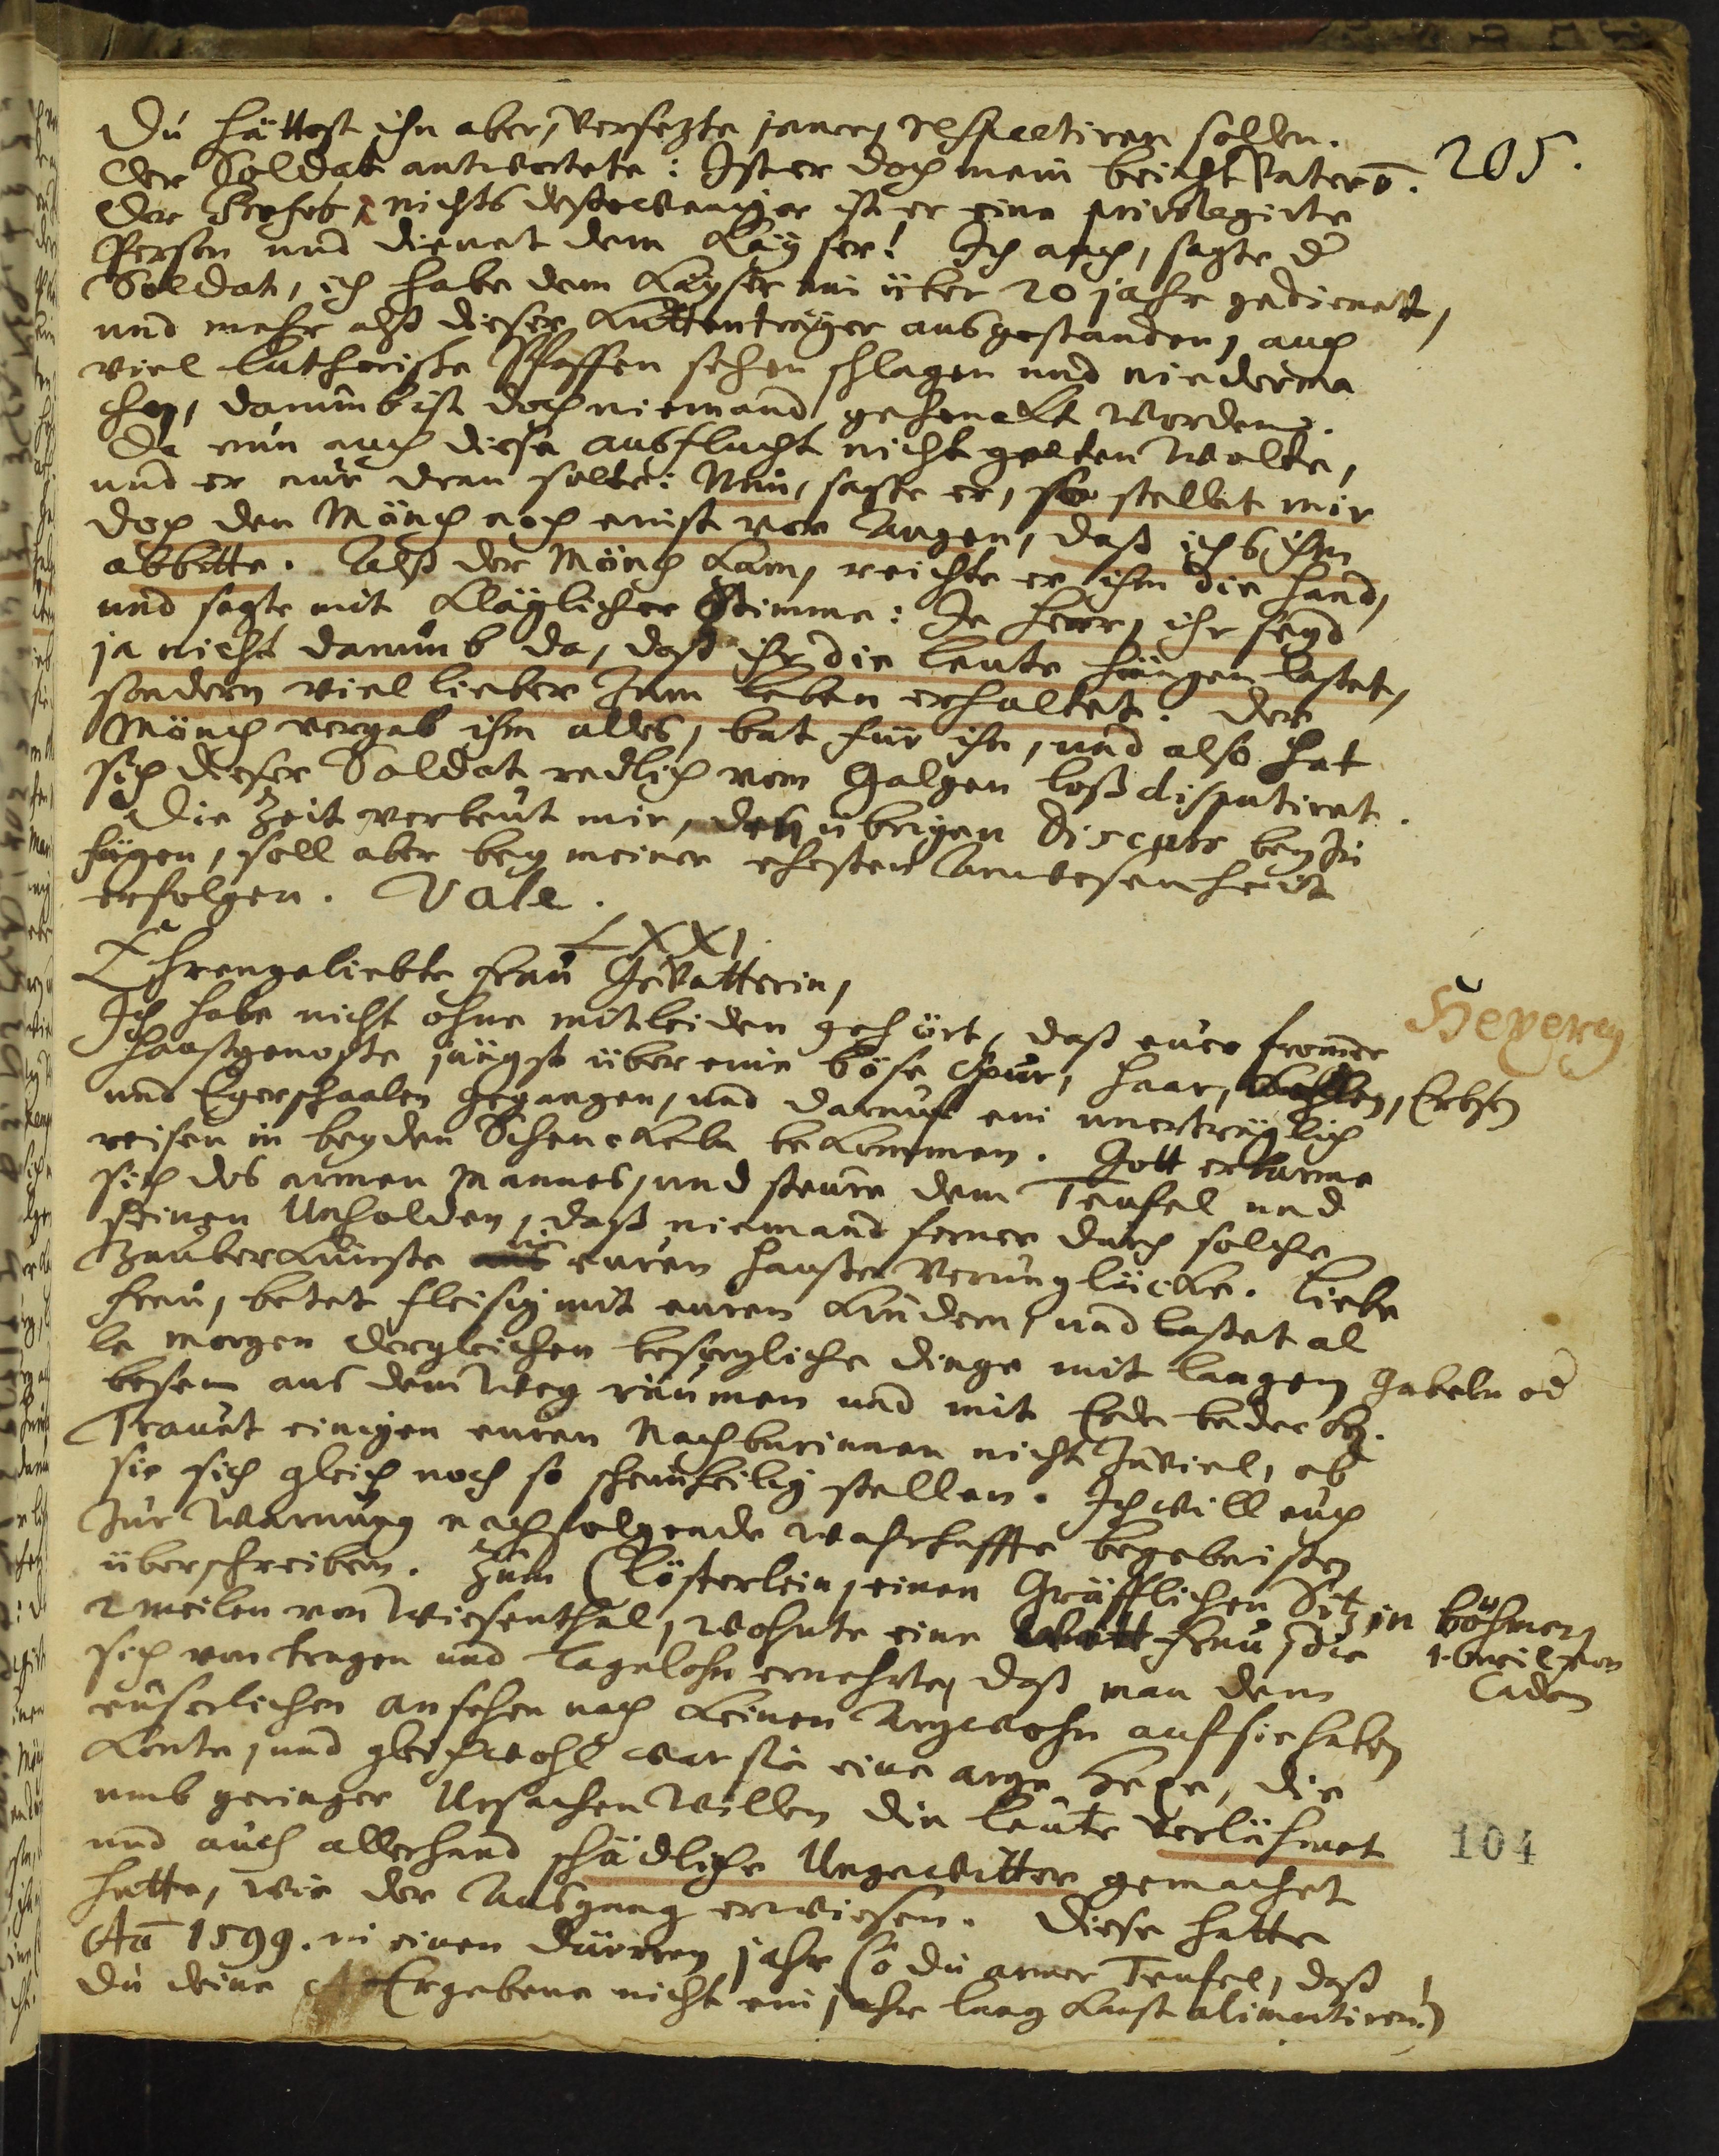 205.
Du hättest ihn aber, versetzte jener, respectiren sollen.
Der Soldat antwortete: Ist er doch mein beicht Vater
Der Profos, nichts destoweniger ist er eine privilegirte
Person und dienet dem Käyser! Ich auch, sagte d
Soldat, ich habe dem Käyser nu über 20 jahr gedienet,
und mehr alß dieser Kuttenträger ausgestanden, auch
viel lutherische Pfaffen sehen schlagen und niederma
chen, darumb ist doch niemand gehenckt worden.
Da nun auch diese ausflucht nicht gelten wolte,
und er nur dran solte: Nun, sagte er, so stellet mir
doch den Mönch noch einst vor Augen, daß ichs ihm
abbitte. Alß der Mönch kam, reichte er ihm die hand,
und sagte mit kläglicher Stimme: Je herr, ihr seyd
ja nicht darumb da, daß ihr die leute hängen lasset,
sondern viel lieber zum leben erhaltet. Der
Mönch vergab ihm alles, bat für ihn, und also hat
sich dieser Soldat redlich vom Galgen loß disputiret.
Die Zeit verbeut mir, den übrigen Discurs bey zu
fügen, soll aber bey meiner ehesten Anwesenheit
erfolgen. Vale.
LXXI.
Ehrengeliebte frau Gevatterin,
Hexerey
Ich habe nicht ohne mitleiden gehört, daß euer frommer
haußgenoße jüngst über eine böse Spur, haar, Erbsen
und Eyerschaalen gegangen, und darauf ein unerträglich
reisen in beyden Schenckeln bekommen. Gott erbarme
sich des armen Mannes, und steure dem Teufel und
seinen Unholden, daß niemand ferner durch solche
Zauberkünste in euren hauße verunglücke. Liebe
frau, betet fleisig mit euren Kindern, und lasset al
le morgen dergleichen besorgliche dinge mit langen Gabeln od
besem aus dem Weg räumen und mit Erde bedecken.
Trauet einigen euren Nachburinnen nicht zu viel, ob
sie sich gleich noch so scheinheilig stellen. Ich will euch
zur Warnung nachfolgende wahrhaffte begebnißen
überschreiben. Zum Clösterlein, einen Gräfflichen Sitz in böhmen
2 meilen von Wiesenthal, wohnte eine frau, die
1. meil von
Caden
sich von tragen und tagelohn ernehrte, daß man dem
euserlichen ansehen nach keinen Argwohn auf sie haben
konte, und gleichwohl war sie eine arge Hexe, die
umb geringer Ursachen willen die leute verlähmet
104
und auch allerhand schädliche Ungewitter gemachet
hatte, wie der Ausgang erwiesen. Diese hatte
Aō 1599. in einen dürren jahr (ô du armer Teufel, daß
du deine Ergebene nicht ein jahr lang kanst alimentiren!)